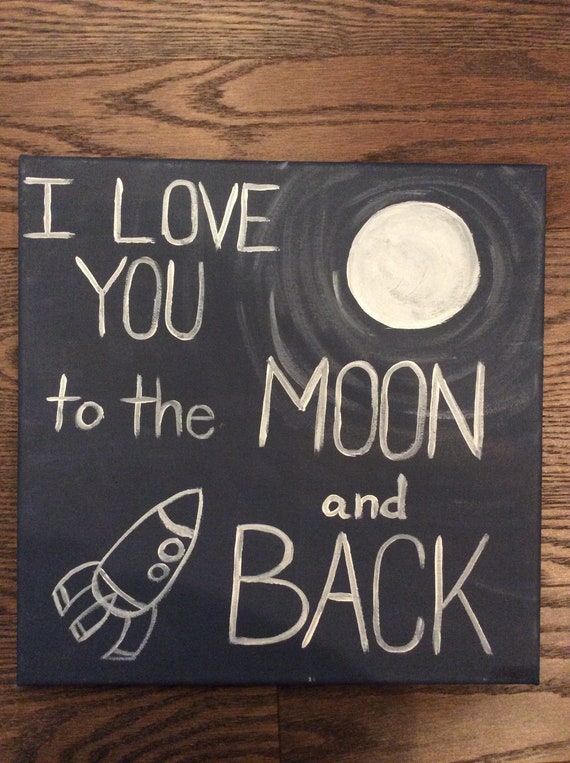 I LOVE
YOU
to the MOON
and
BACK